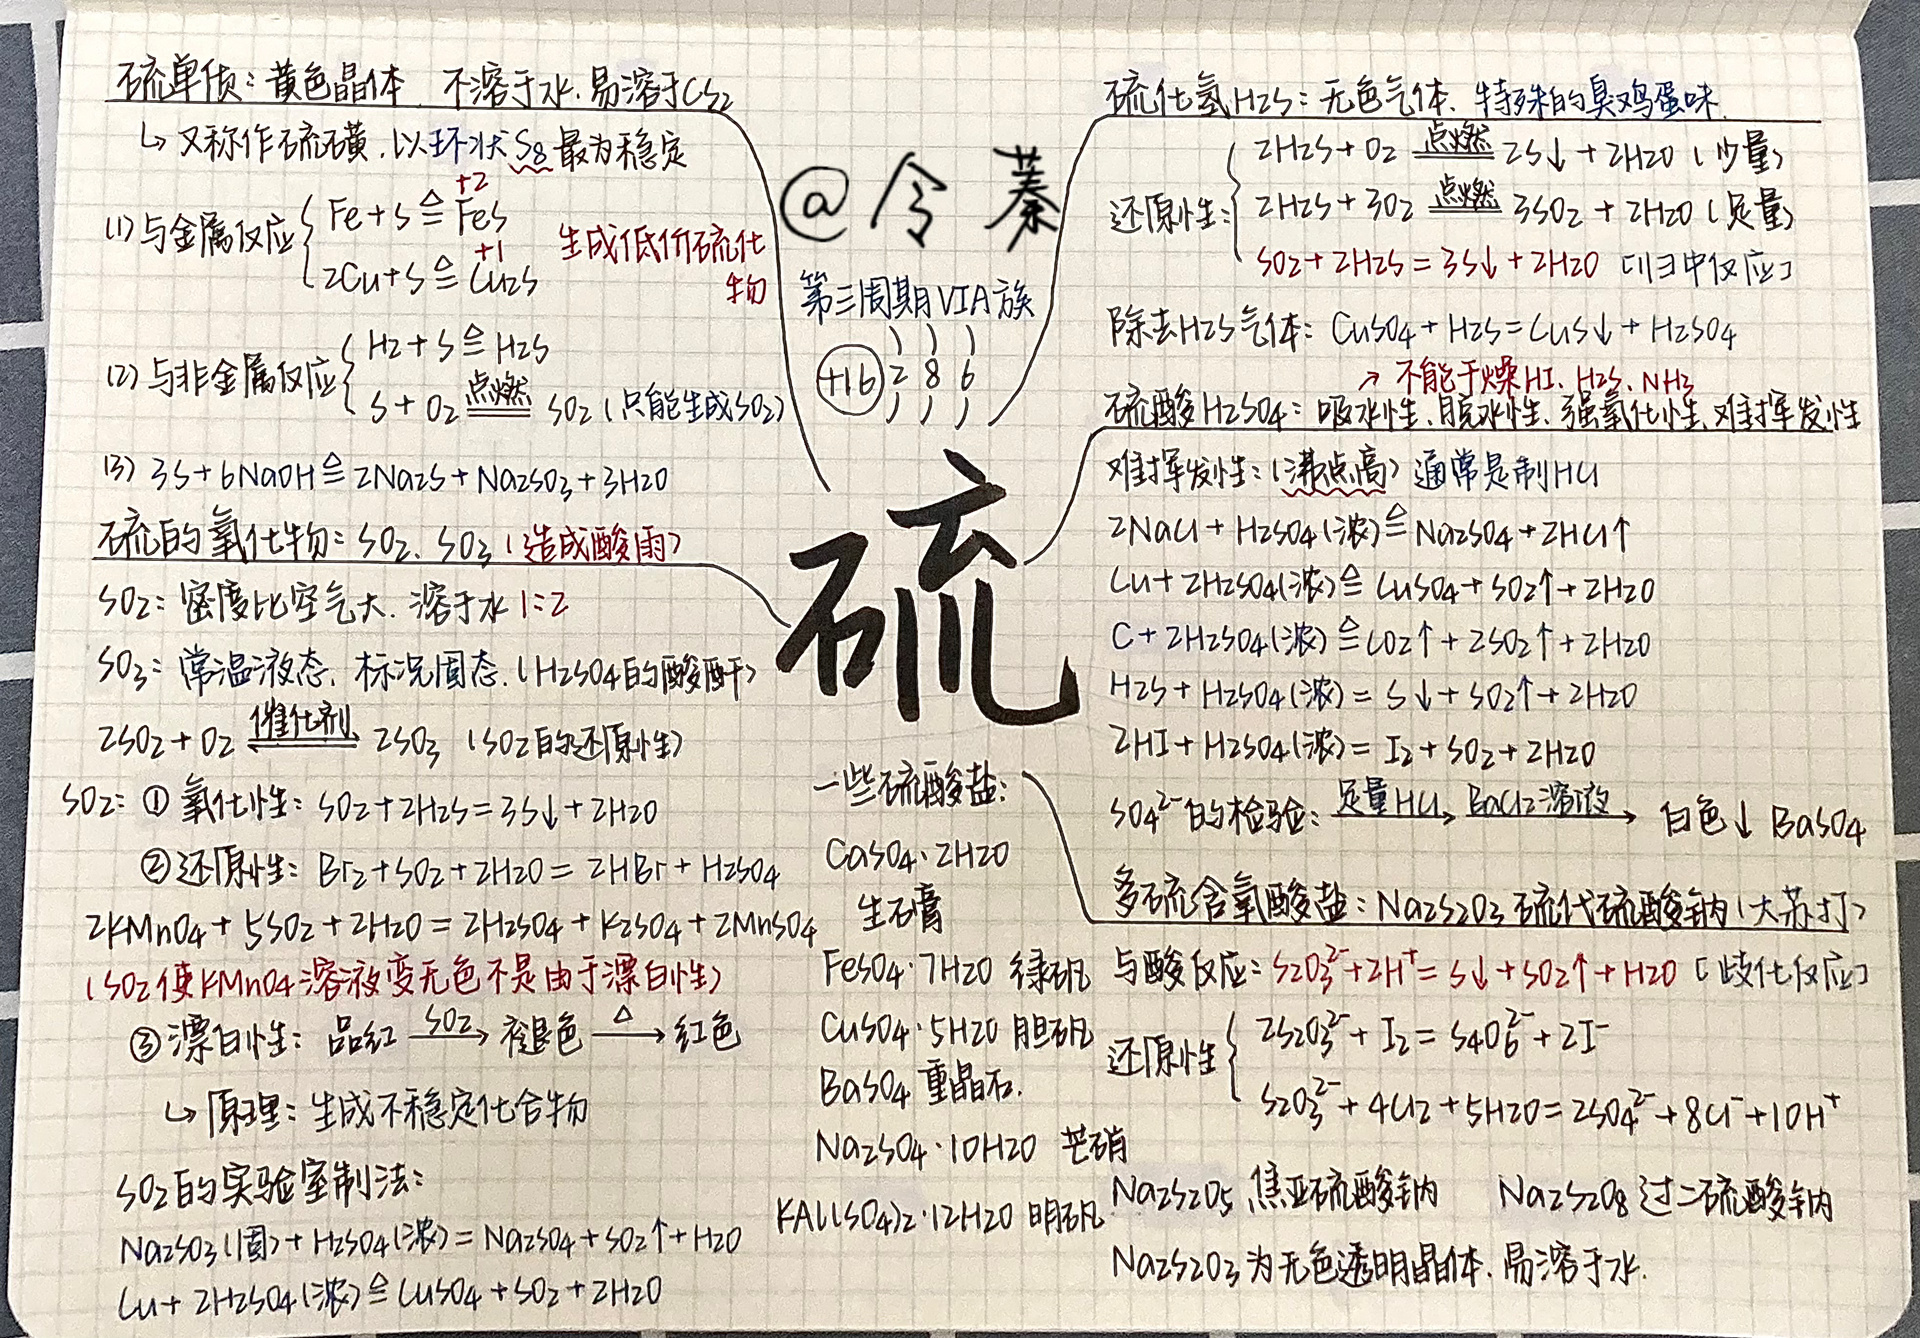 硫单质：黄色晶体、不溶于水、易溶于CS₂
↳ 又称作硫磺，以环状S₈最为稳定
(1) 与金属反应
+2
Fe+S ≜ FeS
+1
2Cu+S ≜ Cu₂S
生成低价硫化物
(2) 与非金属反应
H₂+S ≜ H₂S
S+O₂ 点燃 SO₂ (只能生成SO₂)
(3) 3S+6NaOH ≜ 2Na₂S+Na₂SO₃+3H₂O
硫的氧化物：SO₂、SO₃ (造成酸雨)
SO₂：密度比空气大、溶于水 1:2
SO₃：常温液态、标况固态、(H₂SO₄的酸酐)
2SO₂+O₂ 催化剂 2SO₃ (SO₂的还原性)
SO₂：① 氧化性：SO₂+2H₂S=3S↓+2H₂O
② 还原性：Br₂+SO₂+2H₂O=2HBr+H₂SO₄
2KMnO₄+5SO₂+2H₂O=2H₂SO₄+K₂SO₄+2MnSO₄
(SO₂使KMnO₄溶液变无色不是由于漂白性)
③ 漂白性：品红 SO₂→ 褪色 △→ 红色
↳ 原理：生成不稳定化合物
SO₂的实验室制法：
Na₂SO₃(固)+H₂SO₄(浓)=Na₂SO₄+SO₂↑+H₂O
Cu+2H₂SO₄(浓) ≜ CuSO₄+SO₂+2H₂O
@令蓁
第三周期VIA族
+16 2 8 6
硫
一些硫酸盐：
CaSO₄·2H₂O
生石膏
FeSO₄·7H₂O 绿矾
CuSO₄·5H₂O 胆矾
BaSO₄ 重晶石.
Na₂SO₄·10H₂O 芒硝
KAl(SO₄)₂·12H₂O 明矾
硫化氢H₂S：无色气体、特殊的臭鸡蛋味.
还原性：
2H₂S+O₂ 点燃 2S↓+2H₂O (少量)
2H₂S+3O₂ 点燃 3SO₂+2H₂O (足量)
SO₂+2H₂S=3S↓+2H₂O [归中反应]
除去H₂S气体：CuSO₄+H₂S=CuS↓+H₂SO₄
↗ 不能干燥HI、H₂S、NH₃
硫酸H₂SO₄：吸水性、脱水性、强氧化性、难挥发性
难挥发性：(沸点高) 通常是制HCl
2NaCl+H₂SO₄(浓) ≜ Na₂SO₄+2HCl↑
Cu+2H₂SO₄(浓) ≜ CuSO₄+SO₂↑+2H₂O
C+2H₂SO₄(浓) ≜ CO₂↑+2SO₂↑+2H₂O
H₂S+H₂SO₄(浓)=S↓+SO₂↑+2H₂O
2HI+H₂SO₄(浓)=I₂+SO₂+2H₂O
SO₄²⁻的检验：足量HCl→ BaCl₂溶液→ 白色↓ BaSO₄
多硫含氧酸盐：Na₂S₂O₃ 硫代硫酸钠(大苏打)
与酸反应：S₂O₃²⁻+2H⁺=S↓+SO₂↑+H₂O [歧化反应]
还原性
2S₂O₃²⁻+I₂=S₄O₆²⁻+2I⁻
S₂O₃²⁻+4Cl₂+5H₂O=2SO₄²⁻+8Cl⁻+10H⁺
Na₂S₂O₅ 焦亚硫酸钠 Na₂S₂O₈ 过二硫酸钠
Na₂S₂O₃为无色透明晶体、易溶于水.